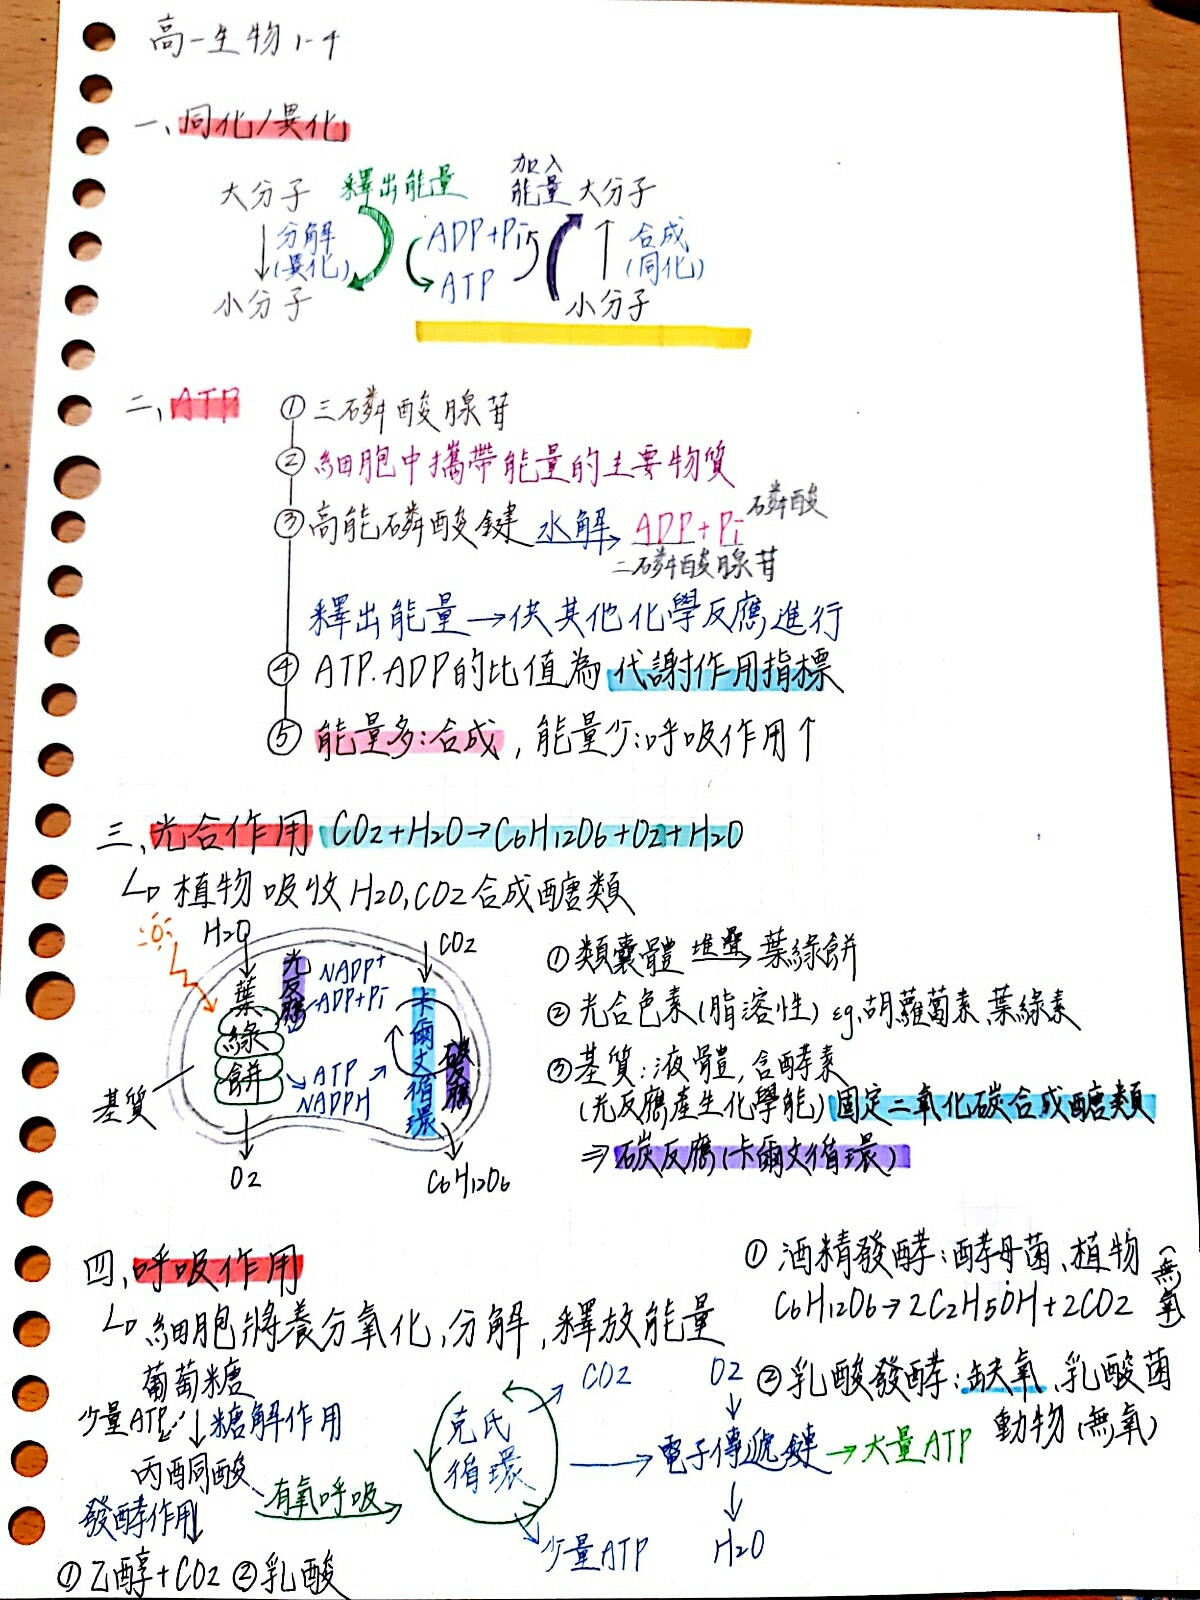 高一生物1-4
一、同化/異化
大分子 釋出能量 加入能量 大分子
分解 ADP+Pi 合成
(異化) ATP (同化)
小分子 小分子
二、ATP ①三磷酸腺苷
②細胞中攜帶能量的主要物質
③高能磷酸鍵 水解→ ADP+Pi 磷酸
二磷酸腺苷
釋出能量→供其他化學反應進行
④ATP.ADP的比值為代謝作用指標
⑤能量多:合成,能量少:呼吸作用↑
三、光合作用 CO2+H2O→C6H12O6+O2+H2O
↳植物吸收H2O,CO2合成醣類
H2O
CO2
光反應
NADP+
ADP+Pi
葉綠餅
ATP
NADPH
卡爾文循環
碳反應
基質
O2
C6H12O6
①類囊體 堆疊→ 葉綠餅
②光合色素(脂溶性) eg.胡蘿蔔素、葉綠素
③基質:液體,含酵素
(光反應產生化學能)固定二氧化碳合成醣類
⇒碳反應(卡爾文循環)
四、呼吸作用
↳細胞將養分氧化,分解,釋放能量
①酒精發酵:酵母菌、植物(無氧)
C6H12O6→2C2H5OH+2CO2
②乳酸發酵:缺氧、乳酸菌
動物(無氧)
葡萄糖
少量ATP ↓糖解作用
丙酮酸
發酵作用↓
①乙醇+CO2 ②乳酸
有氧呼吸→
克氏循環
CO2
少量ATP
O2
→電子傳遞鏈→大量ATP
H2O